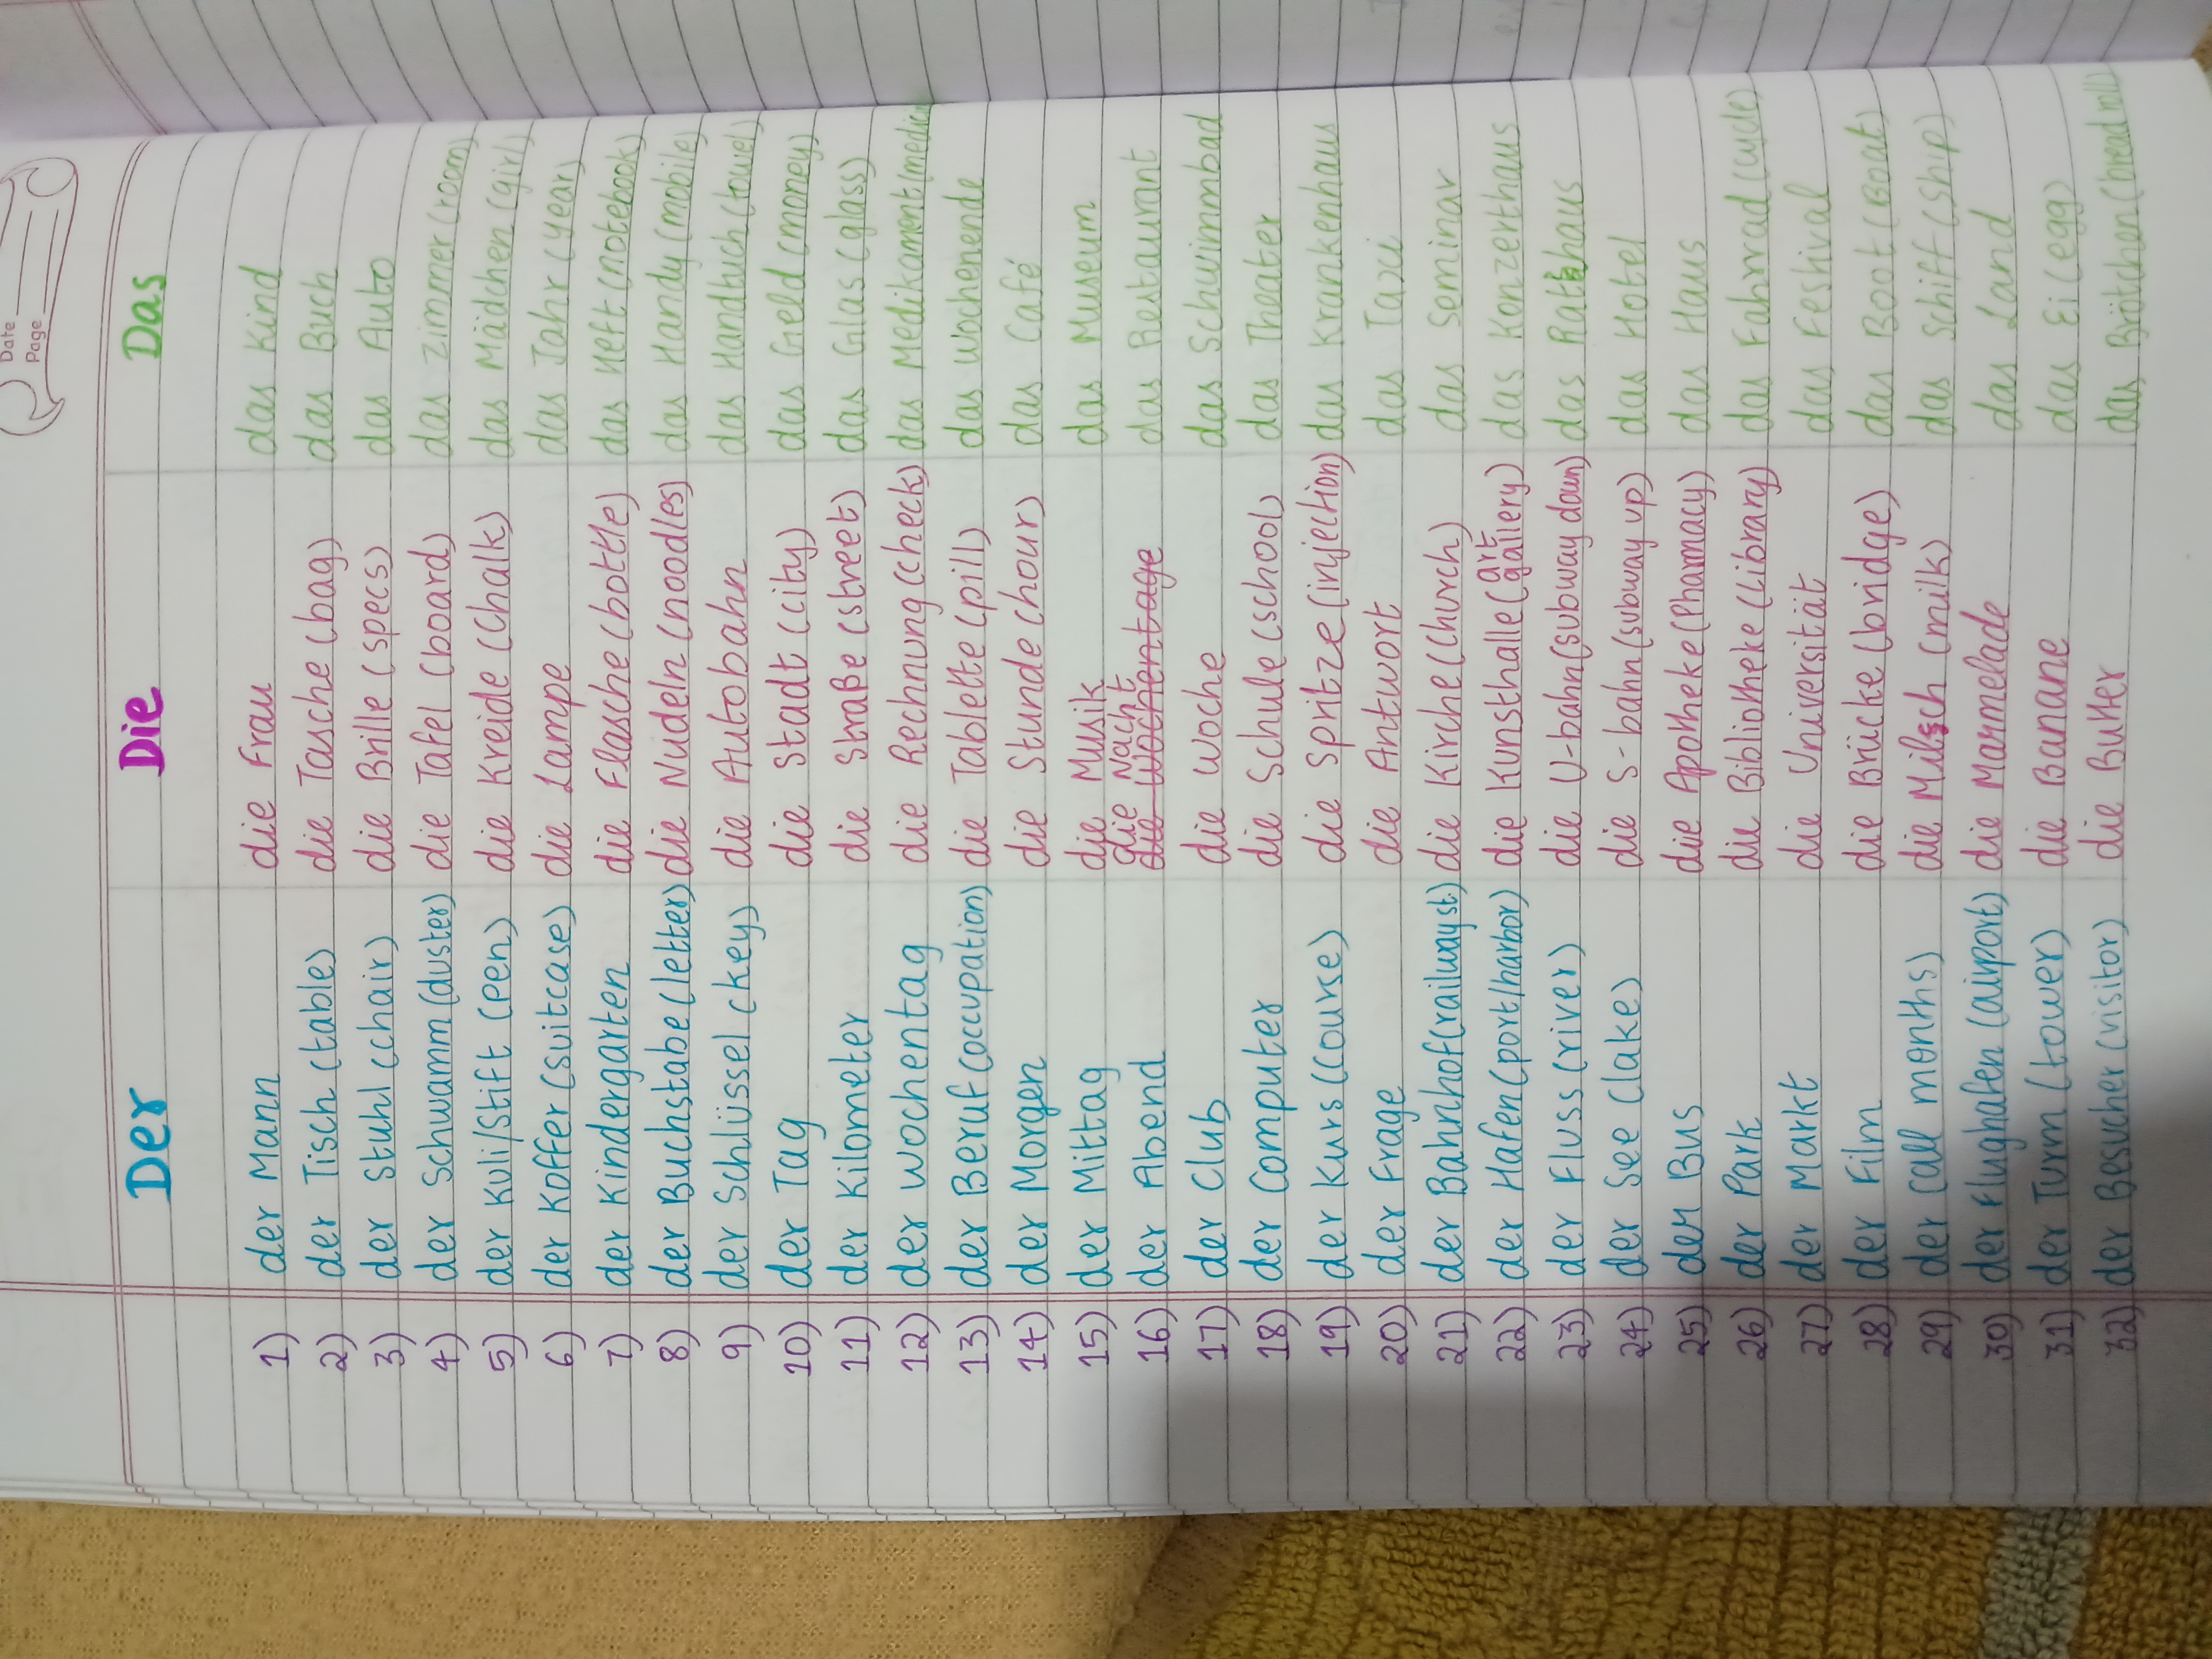 Date
Page
Der Die Das
1) der Mann die Frau das Kind
2) der Tisch (table) die Tasche (bag) das Buch
3) der Stuhl (chair) die Brille (specs) das Auto
4) der Schwamm (duster) die Tafel (board) das Zimmer (room)
5) der Kuli/Stift (pen) die Kreide (Chalk) das Mädchen (girl)
6) der Koffer (suitcase) die Lampe das Jahr (year)
7) der Kindergarten die Flasche (bottle) das Heft (notebook)
8) der Buchstabe (letter) die Nudeln (noodles) das Handy (mobile)
9) der Schlüssel (key) die Autobahn das Handtuch (towel)
10) der Tag die Stadt (city) das Geld (money)
11) der Kilometer die Straße (street) das Glas (glass)
12) der Wochentag die Rechnung (check) das Medikament (medicin
13) der Beruf (occupation) die Tablette (pill) das Wochenende
14) der Morgen die Stunde (hour) das Café
15) der Mittag die Musik das Museum
die Nacht
16) der Abend die Wochentage das Restaurant
17) der Club die Woche das Schwimmbad
18) der Computer die Schule (school) das Theater
19) der Kurs (Course) die Spritze (injection) das Krankenhaus
20) der Frage die Antwort das Taxi
21) der Bahnhof (railway st.) die Kirche (Church) das Seminar
22) der Hafen (port/harbor) die Kunsthalle (art gallery) das Konzerthaus
23) der Fluss (river) die U-bahn (subway down) das Rathaus
24) der See (lake) die S-bahn (subway up) das Hotel
25) der Bus die Apotheke (Pharmacy) das Haus
26) der Park die Bibliotheke (Library) das Fahrrad (cycle)
27) der Markt die Universität das Festival
28) der Film die Brücke (bridge) das Boot (Boat)
29) der (all months) die Milsch (milk) das Schiff (Ship)
30) der Flughafen (airport) die Marmelade das Land
31) der Turm (tower) die Banane das Ei (egg)
32) der Besucher (visitor) die Butter das Brötchen (bread roll)